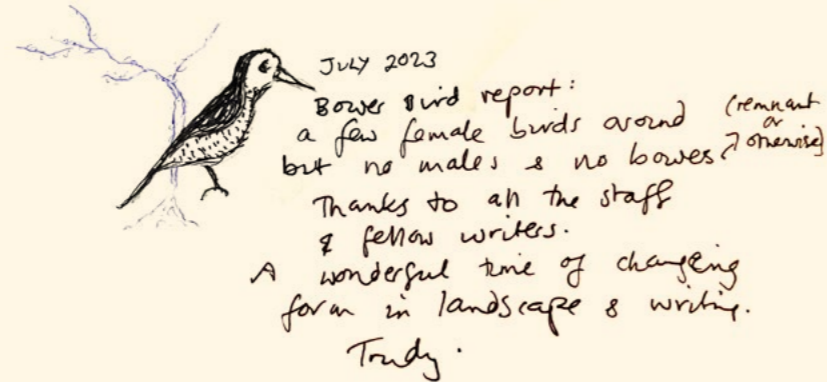 JULY 2023
Bower Bird report:
a few female birds around
but no males & no bowes (remnant or otherwise)
Thanks to all the staff
& fellow writers.
A wonderful time of changing
form in landscape & writing.
Trudy.